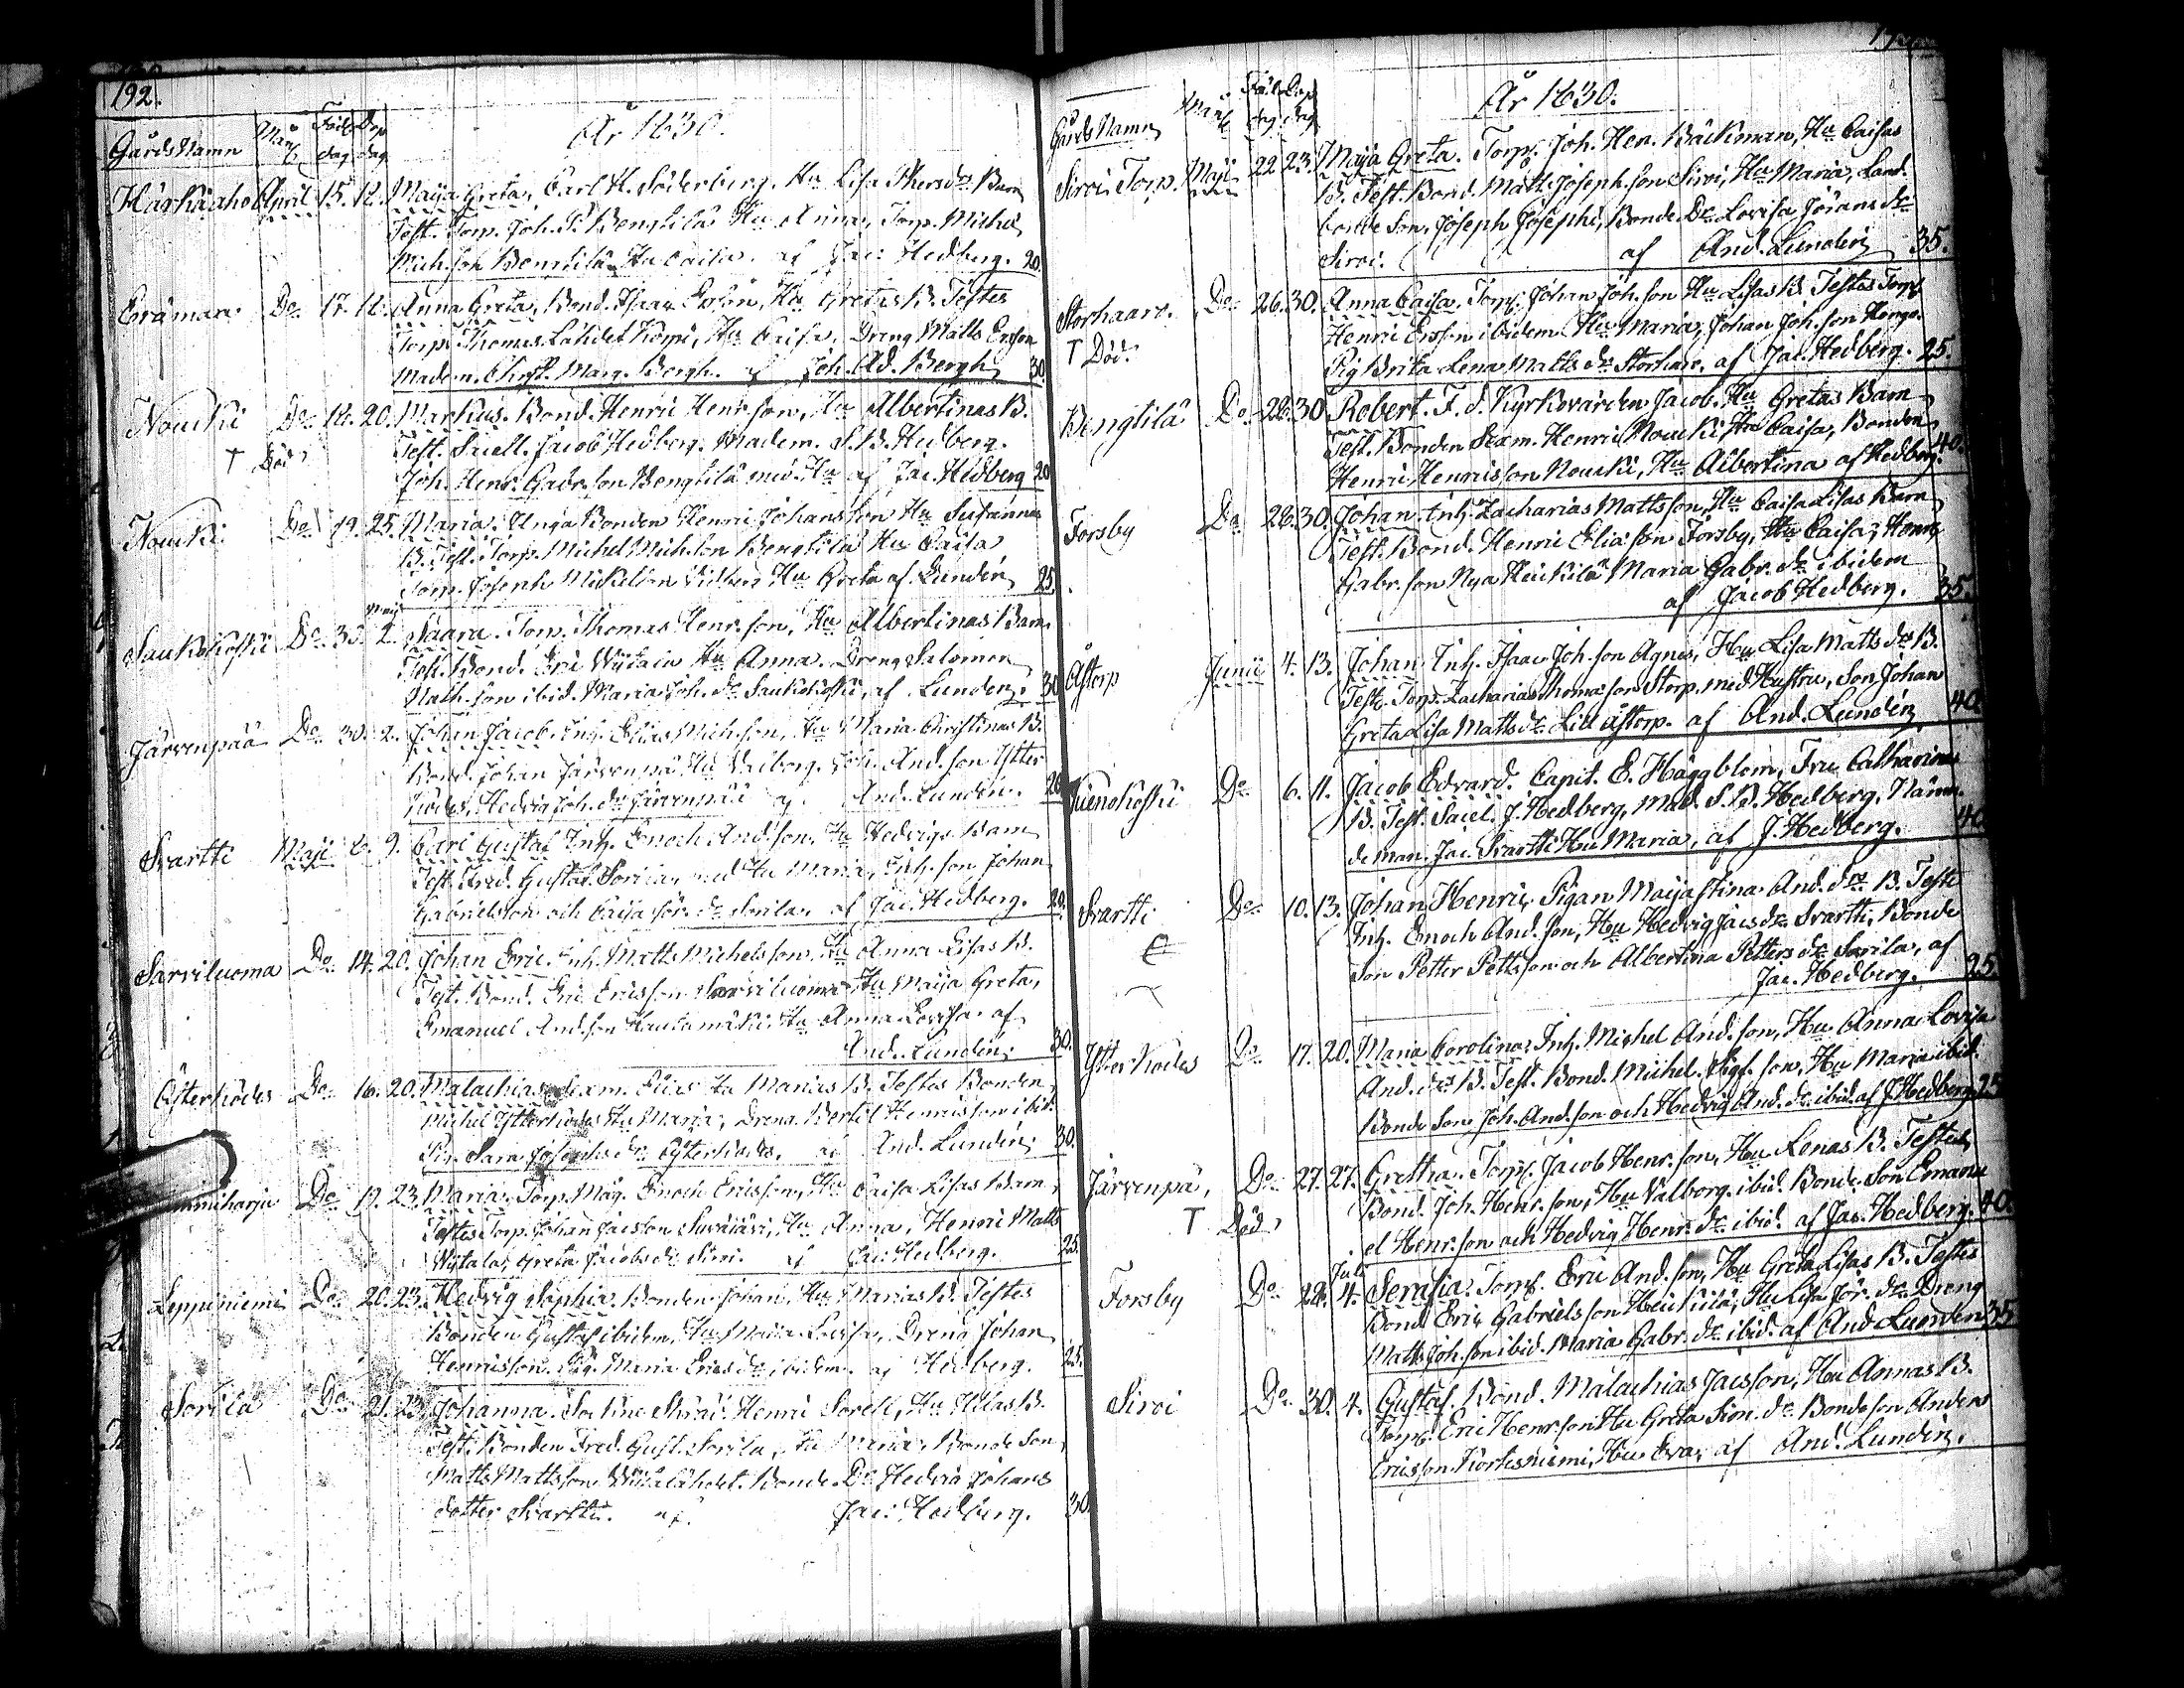 192.
År 1830.
Gårds Namn Mån Föd. dag Dop dag
Härkäaho April 15. 18. Maija Greta, Carl H. Söderberg, Hu Lisa Phersdr Barn
Test. Torp. Joh. P. Bengtilä Hu Anna, Torp. Michel
Mich.son Bengtilä Hu Caisa. af Jac: Hedberg. 20.
Erämaa Do 17. 18. Anna Greta, Bond. Isaac Ersson, Hu Gretas B. Testes
Torp. Thomas Lähdet Korpi, Hu Caisa, Dreng Matts Ersson
Madem. Christ. Marg. Bergh. af Joh. Ad. Bergh 30.
Noucki Do 18. 20. Markus. Bond. Henric Henr.son, Hu Albertinas B.
† Död Test. Sacell. Jacob Hedberg, Madem. S. B. Hedberg.
Joh. Henr. Gabr.son Bengtilä med Hu af Jac. Hedberg 20
Noucki Do 19. 25. Maria. Unga Bonden Henric Johansson Hu Susannas
B. Test. Torp. Michel Mich.son Bengtilä Hu Caisa
Torp. Joseph Mickelson Hu Greta af Lundén 25
Saukkokoski Do 30. 2. Saara. Torp. Thomas Henr.son, Hu Albertinas Barn
Test. Bond. Eric Wiitala Hu Anna. Dreng Salomon
Math.son ibid. Maria Joh. dr Saukkokoski, af Lundén. 30
Järvenpää Do 30. 2. Johan Jacob. Inh. Elias Mich.son, Hu Maria Christinas B.
Bond. Johan Järvenpää Hu Valborg. Joh. And.son Ytter
Kodes, Hedvig Joh. dr Järvenpää af And. Lundén. 20
Svartti Maji 8. 9. Carl Gustaf Inh. Enoch And.son, Hu Hedvigs Barn
Test. Fred. Gustaf Sorila, med Hu Maria, Inh. son Johan
Gabrielsson och Caija Jör. dr Sorila, af Jac. Hedberg. 20.
Sarviluoma Do 14. 20. Johan Eric. Inh. Matts Michelsson, Hu Anna Lisas B.
Test. Bond. Eric Ericsson Sarviluoma, Hu Maija Greta,
Emanuel And.son Hautamäki, Hu Anna Lovisa. af
And. Lundén. 30.
Östterkodes Do 16. 20. Malachias. Sexm. Elias Hu Marias B. Testes Bonden
Michel Ytterkodes Hu Maria, Dreng Bertil Henrisson ibid.
Pig. Sara Josephs dr Östterkodes, af And. Lundén. 30.
Do 19. 23. Maria. Torp. Mäg. Enoch Ericsson, Hu Caisa Lisas Barn
Testes Torp. Johan Jacsson Hu Anna, Henric Matts
Wiitala, Greta Jacobs dr Siroi. af Jac: Hedberg. 25.
Leppiniemi Do 20. 23. Hedvig Sophia. Bonden Johan, Hu Marias B. Testes
Bonden Gustaf ibidem, Hu Maija Lovisa, Dreng Johan
Henrisson. Pig. Maria Erics dr ibidem. af Hedberg. 25.
Sorila Do 21. 23. Johanna. Sockne Skräd. Henric Sorell, Hu Ullas B.
Test. Bonden Fred. Gust. Sorila, Hu Maria, Bonde Son
Matts Mattsson Bonde Dr Hedvig Johans
dotter Svartti. af Jac: Hedberg. 30
År 1830.
Gårds Namn Mån Föd. dag Dop dag
Siroi Torp. Maji 22. 23. Maja Greta. Torp. Joh. Hen. Bäckman, Hu Caisas
B. Test. Bond. Matts Joseph.son Siroi, Hu Maria, Land
bonde Son, Joseph Josephs, Bonde Dr Lovisa Jörans dr
Siroi. af And. Lundén 35.
Storhaaro. Do 26. 30. Anna Caisa. Torp. Johan Joh.son Hu Lisas B. Testes Torp.
† Död. Henric Ersson ibidem Hu Maria, Johan Joh.son Kongo.
Pig Brita Lena Matts dr Storhaaro, af Jac. Hedberg. 25.
Bengtilä Do 28. 30 Robert. F. d. Kyrkovärden Jacob. Hu Gretas Barn
Test. Bonden Sexm. Henric Noucki Hu Caisa, Bonden
Henric Henricsson Noucki, Hu Albertina af Hedberg. 40.
Forsby Do 28. 30. Johan. Inh. Zacharias Mattsson, Hu Caisa Lisas Barn
Test. Bond. Henric Eliasson Forsby, Hu Caisa, Henric
Gabr.son Nya Heickilä Maria Gabr. dr ibidem
af Jacob Hedberg. 35.
Åstorp Junii 4. 13. Johan. Inh. Isaac Joh.son Agnes, Hu Lisa Matts dr B.
Test. Torp. Zacharias Thomasson Storp, med Hustru, Son Johan
Greta Lisa Matts dr Lill Åstorp. af And. Lundén 40
Kuenokoski Do 6. 11. Jacob Edvard. Capit. E. Häggblom, Fru Catharinas
B. Test. Sacel. J. Hedberg, Mad. S. B. Hedberg, Nämn
deman. Jac. Svartti Hu Maria, af J. Hedberg. 40
Svartti Do 10. 13. Johan Henric, Pigan Maija Stina And. drs B. Teste
Inh. Enoch And.son, Hu Hedvig Jacs dr Svartti, Bonde
Son Petter Pettsson och Albertina Petters dr Sorila, af
Jac. Hedberg. 25
Ytter Kodes Do 17. 20. Maria Carolina. Inh. Michel And.son, Hu Anna Lovisa
And. drs B. Test. Bond. Michel. Sigf.son, Hu Maria ibid.
Bonde Son, Joh. And.son och Hedvig And. dr ibid. af J. Hedberg 25
Järvenpä, Do 27. 27. Gretha. Torp. Jacob Henr.son, Hu Lenas B. Testes
† Död Bond. Joh. Henr.son, Hu Valborg. ibid. Bonde Son Emanu
el Henr.son och Hedvig Henr. dr ibid. af Jac. Hedberg. 40.
Juli
Forsby Do 28. 4. Serafia. Torp. Eric And.son, Hu Greta Lisas B. Testes
Bond Eric Gabrielsson Heickilä, Hu Lisa Jör. dr Dreng
Matts Joh.son ibid. Maria Gabr. dr ibid. af And Lunden 35
Siroi Do 30. 4. Gustaf. Bond. Malachias Jacsson, Hu Annas B.
Torp. Eric Henr.son Hu Greta Sion. dr Bondeson Anders
Ericsson Kortesniemi, Hu Eva, af And. Lundén.